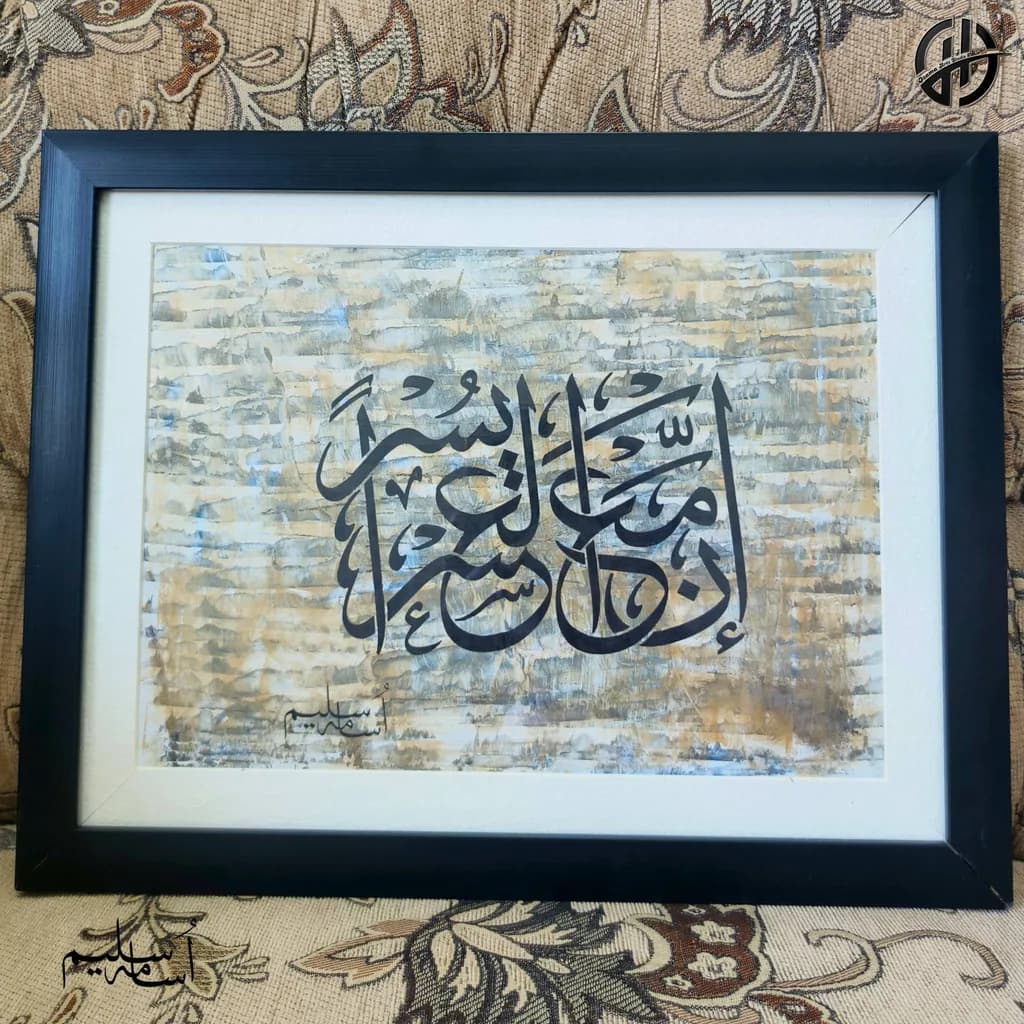 إنَّ مَعَ العسْر يُسْراً
أُسامه سليم
أُسامه سليم